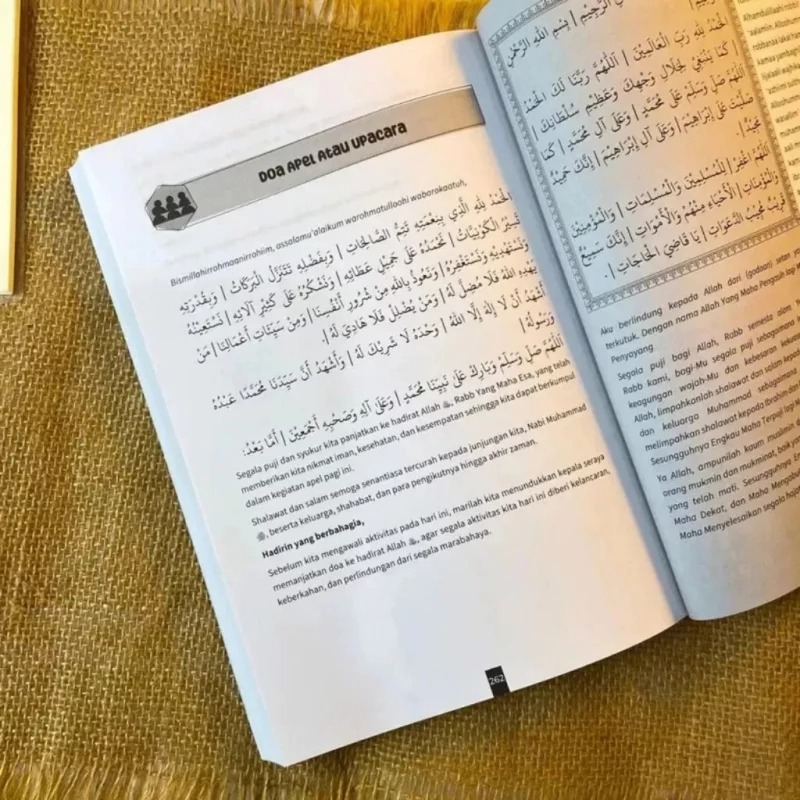 Doa Apel Atau Upacara
Bismillahirrohmaanirrohiim, assalamu'alaikum warohmatullaahi wabarakaatuh,
الْحَمْدُ لِلَّهِ الَّذِي بِنِعْمَتِهِ تَتِمُّ الصَّالِحَاتِ | وَبِفَضْلِهِ تَتَنَزَّلُ الْبَرَكَاتُ | وَبِقُدْرَتِهِ
تَسِيرُ الْكَوْنِيَّاتُ | نَحْمَدُهُ عَلَى جَمِيْلِ عَطَائِهِ | وَنَشْكُرُهُ عَلَى كَثِيْرِ آلَائِهِ | نَسْتَعِيْنُهُ
وَنَسْتَهْدِيْهِ وَنَسْتَغْفِرُهُ | وَنَعُوْذُ بِاللهِ مِنْ شُرُوْرِ أَنْفُسِنَا | وَمِنْ سَيِّئَاتِ أَعْمَالِنَا | مَنْ
يَهْدِهِ اللهُ فَلَا مُضِلَّ لَهُ | وَمَنْ يُضْلِلْ فَلَا هَادِيَ لَهُ |.
أَشْهَدُ أَنْ لَا إِلَهَ إِلَّا اللهُ | وَحْدَهُ لَا شَرِيْكَ لَهُ | وَأَشْهَدُ أَنَّ سَيِّدَنَا مُحَمَّدًا عَبْدُهُ
وَرَسُوْلُهُ |
اَللّٰهُمَّ صَلِّ وَسَلِّمْ وَبَارِكْ عَلَى نَبِيِّنَا مُحَمَّدٍ | وَعَلَى آلِهِ وَصَحْبِهِ أَجْمَعِيْنَ | أَمَّا بَعْدُ:
Segala puji dan syukur kita panjatkan ke hadirat Allah ﷻ, Rabb Yang Maha Esa, yang telah
memberikan kita nikmat iman, kesehatan, dan kesempatan sehingga kita dapat berkumpul
dalam kegiatan apel pagi ini.
Shalawat dan salam semoga senantiasa tercurah kepada junjungan kita, Nabi Muhammad
ﷺ, beserta keluarga, shahabat, dan para pengikutnya hingga akhir zaman.
Hadirin yang berbahagia,
Sebelum kita mengawali aktivitas pada hari ini, marilah kita menundukkan kepala seraya
memanjatkan doa ke hadirat Allah ﷻ, agar segala aktivitas kita hari ini diberi kelancaran,
keberkahan, dan perlindungan dari segala marabahaya.
262
الرَّجِيْمِ | بِسْمِ اللهِ الرَّحْمٰنِ
الْحَمْدُ لِلَّهِ رَبِّ الْعَالَمِيْنَ | اَللّٰهُمَّ رَبَّنَا لَكَ الْحَمْدُ
كَمَا يَنْبَغِيْ لِجَلَالِ وَجْهِكَ وَعَظِيْمِ سُلْطَانِكَ |
اَللّٰهُمَّ صَلِّ وَسَلِّمْ عَلَى مُحَمَّدٍ | وَعَلَى آلِ مُحَمَّدٍ | كَمَا
صَلَّيْتَ عَلَى إِبْرَاهِيْمَ | وَعَلَى آلِ إِبْرَاهِيْمَ | إِنَّكَ حَمِيْدٌ
مَجِيْدٌ |
اَللّٰهُمَّ اغْفِرْ لِلْمُسْلِمِيْنَ وَالْمُسْلِمَاتِ | وَالْمُؤْمِنِيْنَ
وَالْمُؤْمِنَاتِ | الْأَحْيَاءِ مِنْهُمْ وَالْأَمْوَاتِ | إِنَّكَ سَمِيْعٌ
قَرِيْبٌ مُجِيْبُ الدَّعَوَاتِ | يَا قَاضِيَ الْحَاجَاتِ |.
Aku berlindung kepada Allah dari (godaan) setan ya
terkutuk. Dengan nama Allah Yang Maha Pengasih lagi
Penyayang
Segala puji bagi Allah, Rabb semesta alam
Rabb kami, bagi-Mu segala puji sebagaimana
keagungan wajah-Mu dan kebesaran
Allah, limpahkanlah shalawat dan salam
dan keluarga Muhammad sebagaimana
melimpahkan shalawat kepada Ibrahim dan
Sesungguhnya Engkau Maha Terpuji lagi
Ya Allah, ampunilah kaum muslimin
orang mukmin dan mukminat, baik
yang telah mati. Sesungguhnya
Maha Dekat, dan Maha
Maha Menyelesaikan segala